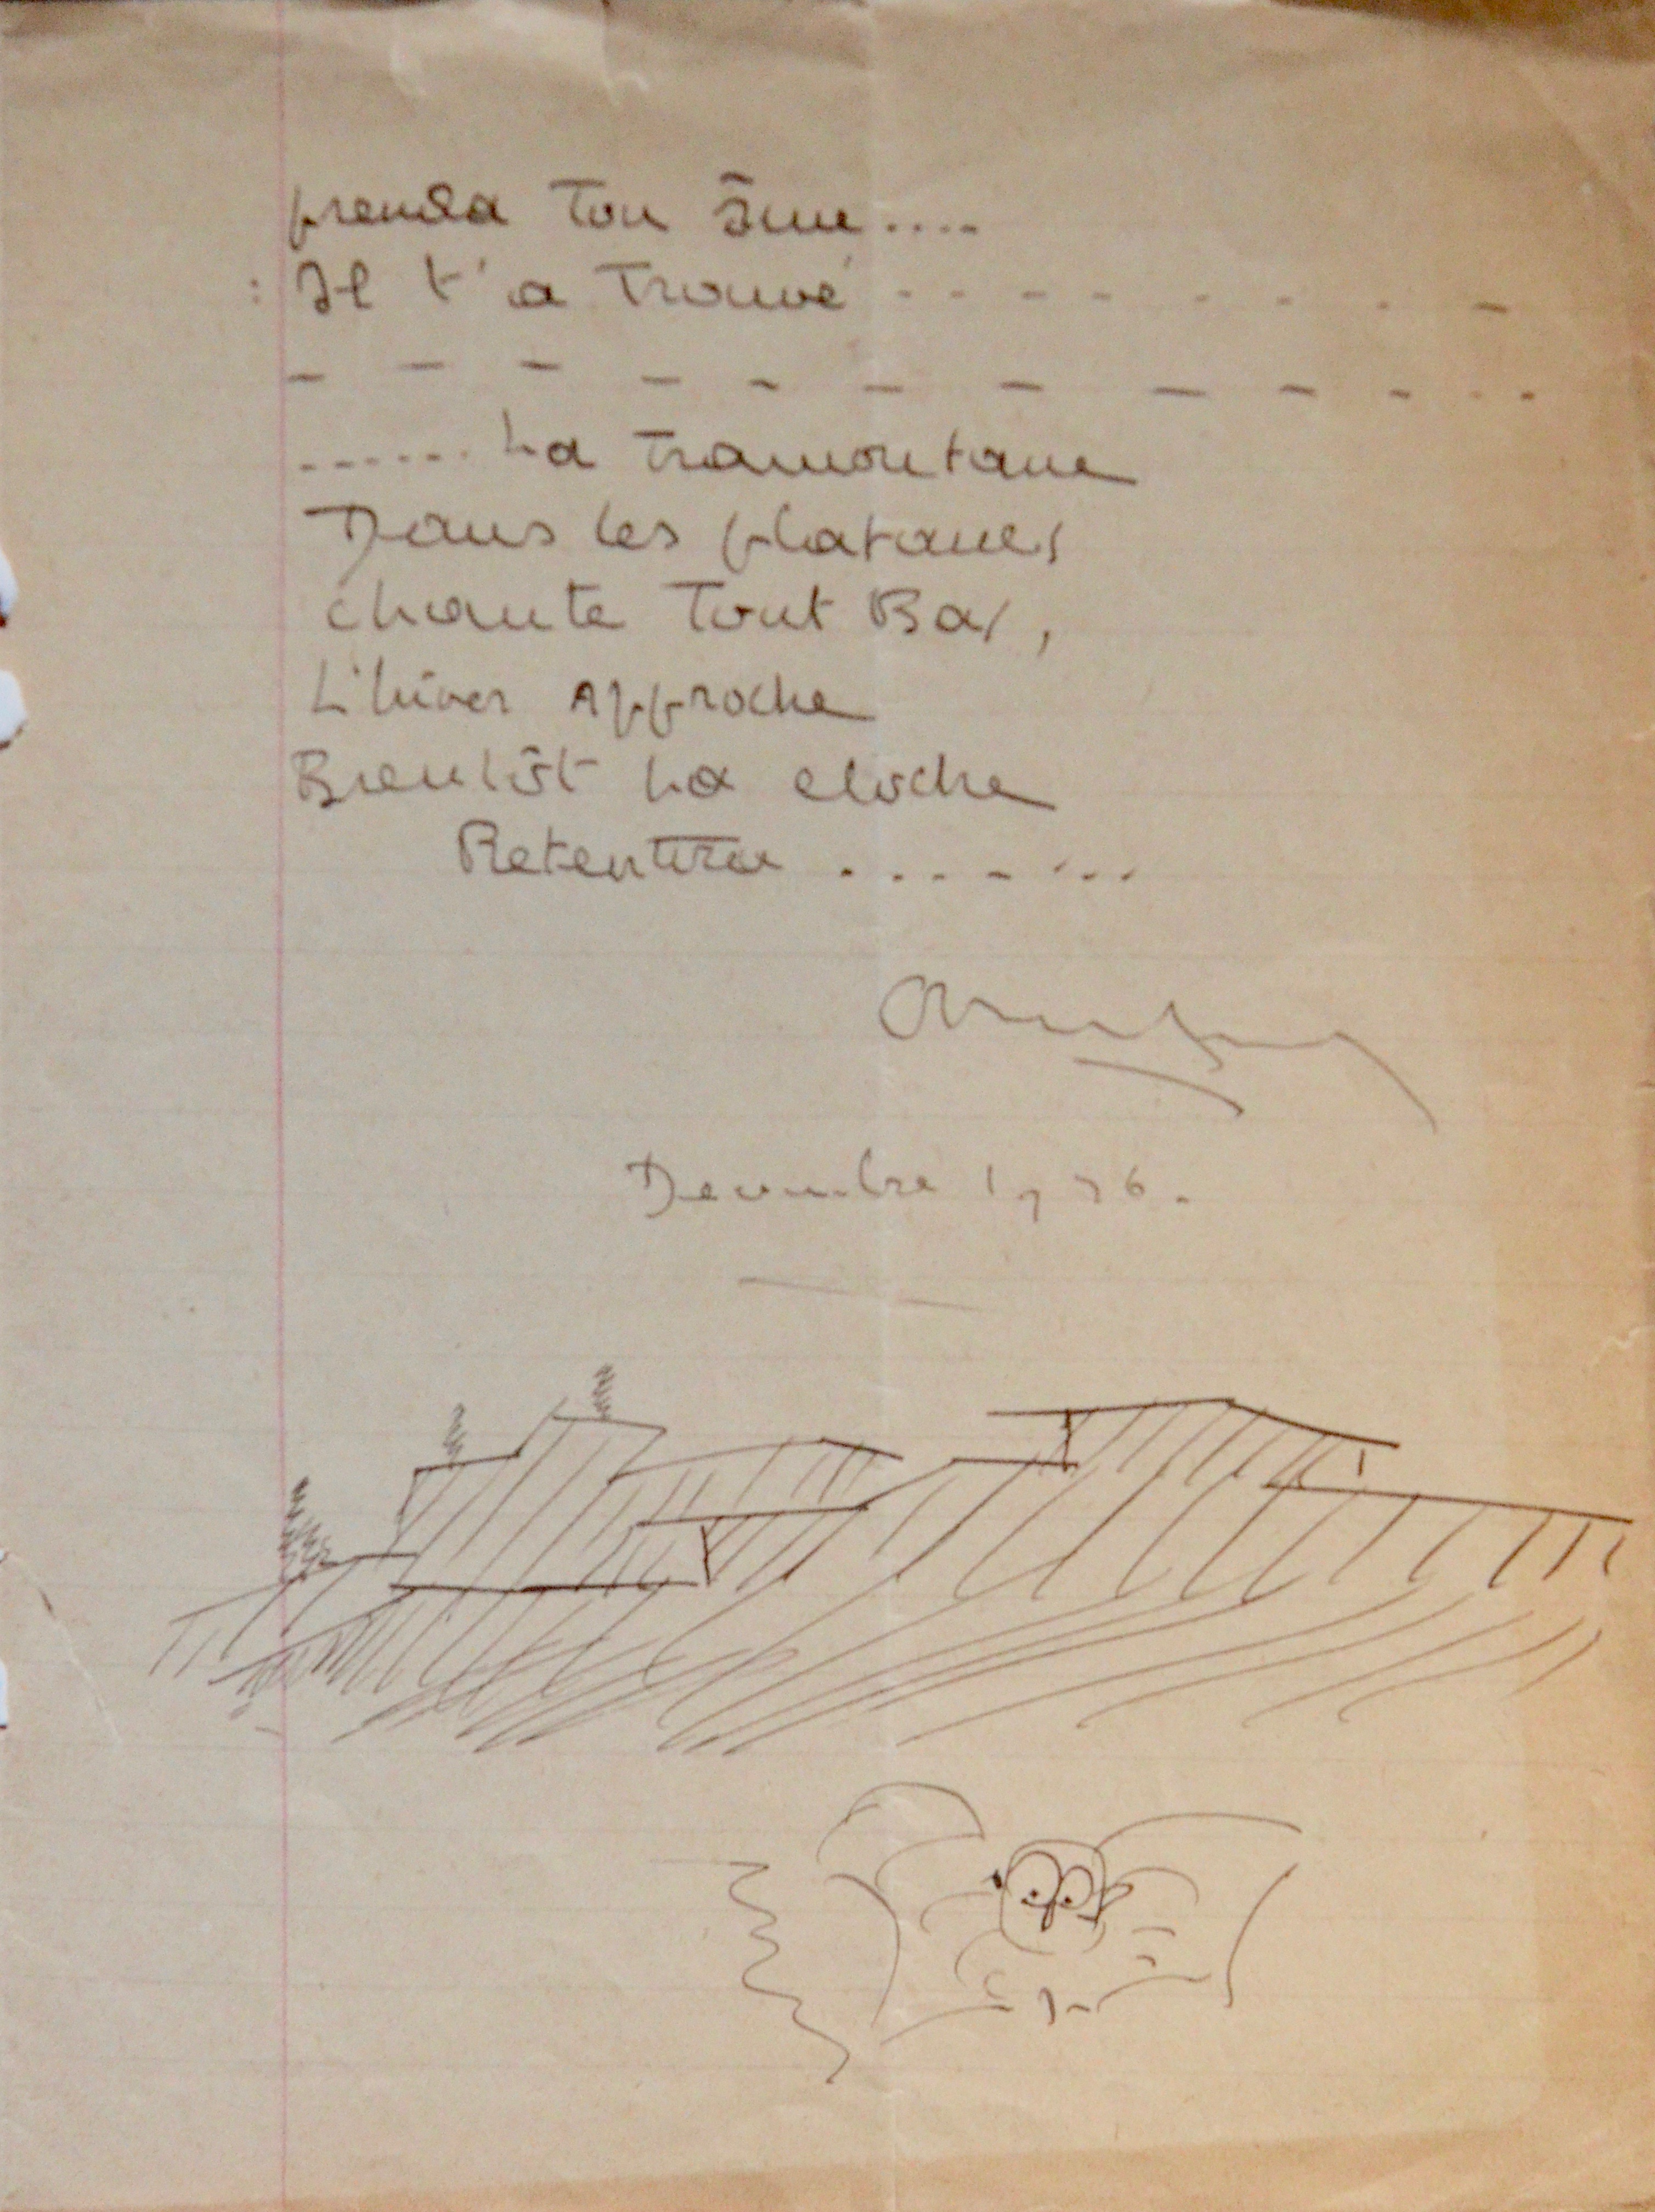 prendra ton âme....
: Il t'a trouvé - - - - - - - - -
- - - - - - - - - - . .
...... La Tramontane
Dans les platanes
chante Tout Bas,
L'hiver Approche
Bientôt La cloche
Retentira . . . . . . . .
Decembre